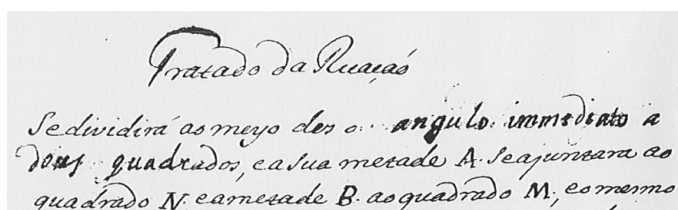 Tratado da Ruação
Se dividirá ao meyo des o angulo immediato a
dous quadrados, e a sua metade A. se ajuntara ao
quadrado N. e a metade B. ao quadrado M, e o mesmo